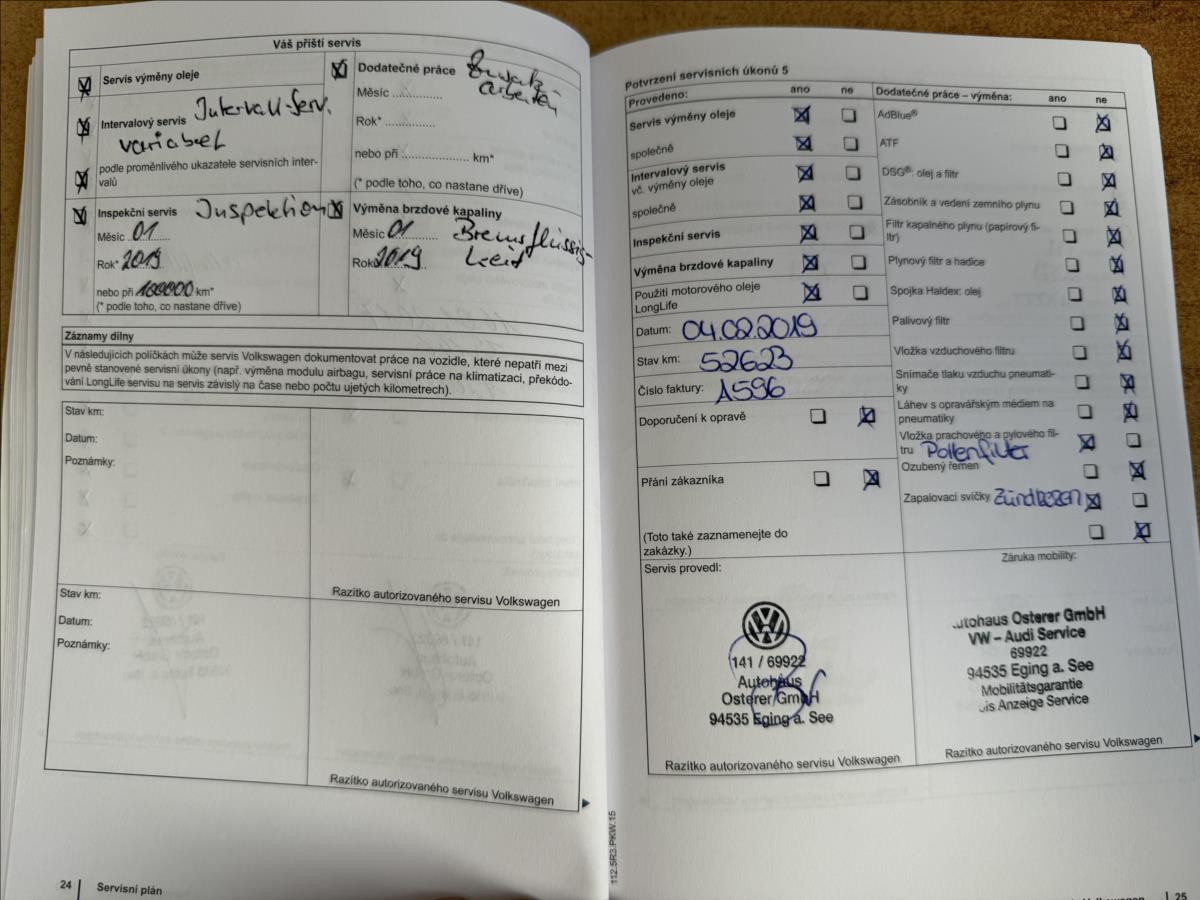 Váš příští servis
Servis výměny oleje
Intervalový servis Intervall-Serv.
variabel
podle proměnlivého ukazatele servisních inter-
valů
Inspekční servis Inspektion
Měsíc 01
Rok* 2019
nebo při 100000 km*
(* podle toho, co nastane dříve)
Dodatečné práce Zusatz
arbeiten
Měsíc ..............
Rok* ..............
nebo při ................... km*
(* podle toho, co nastane dříve)
Výměna brzdové kapaliny
Měsíc 01 Bremsflüssig-
Rok 2019 keit
Záznamy dílny
V následujících políčkách může servis Volkswagen dokumentovat práce na vozidle, které nepatří mezi
pevně stanovené servisní úkony (např. výměna modulu airbagu, servisní práce na klimatizaci, překódo-
vání LongLife servisu na servis závislý na čase nebo počtu ujetých kilometrech).
Stav km:
Datum:
Poznámky:
Razítko autorizovaného servisu Volkswagen
Stav km:
Datum:
Poznámky:
Razítko autorizovaného servisu Volkswagen
24 Servisní plán
Potvrzení servisních úkonů 5
Provedeno: ano ne
Servis výměny oleje
společně
Intervalový servis
vč. výměny oleje
společně
Inspekční servis
Výměna brzdové kapaliny
Použití motorového oleje
LongLife
Datum: 04.02.2019
Stav km: 52623
Číslo faktury: A596
Doporučení k opravě
Přání zákazníka
(Toto také zaznamenejte do
zakázky.)
Dodatečné práce – výměna: ano ne
AdBlue®
ATF
DSG®: olej a filtr
Zásobník a vedení zemního plynu
Filtr kapalného plynu (papírový fi-
ltr)
Plynový filtr a hadice
Spojka Haldex: olej
Palivový filtr
Vložka vzduchového filtru
Snímače tlaku vzduchu pneumati-
ky
Láhev s opravářským médiem na
pneumatiky
Vložka prachového a pylového fil-
tru Pollenfilter
Ozubený řemen
Zapalovací svíčky Zündkerzen
Servis provedl:
141 / 69922
Autohaus
Osterer GmbH
94535 Eging a. See
Razítko autorizovaného servisu Volkswagen
Záruka mobility:
utohaus Osterer GmbH
VW – Audi Service
69922
94535 Eging a. See
Mobilitätsgarantie
bis Anzeige Service
Razítko autorizovaného servisu Volkswagen
112.5R3.PKW.15
25